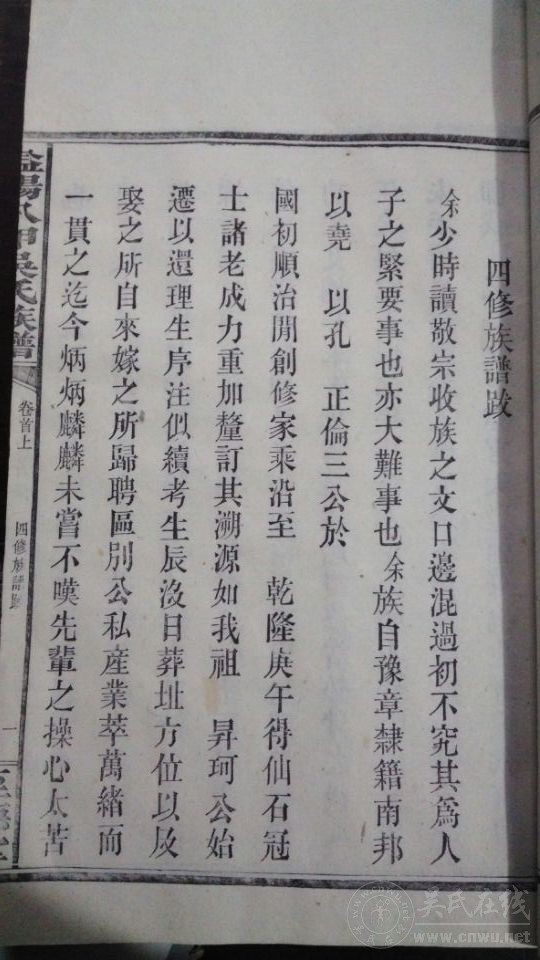 四修族譜跋
余少時讀敬宗收族之文口邊混過初不究其為人
子之緊要事也亦大難事也余族自豫章隸籍南邦
以堯 以孔 正倫三公於
國初順治開創修家乘沿至 乾隆庚午得仙石冠
士諸老成力重加釐訂其溯源如我祖 昇珂公始
遷以還理生序注似續考生辰沒日葬址方位以及
娶之所自來嫁之所歸聘區別公私產業萃萬緒而
一貫之迄今炳炳麟麟未嘗不嘆先輩之操心太苦
益陽八甲吳氏族譜
卷首上
四修族譜跋
一
吴氏在线
www.cnwu.net